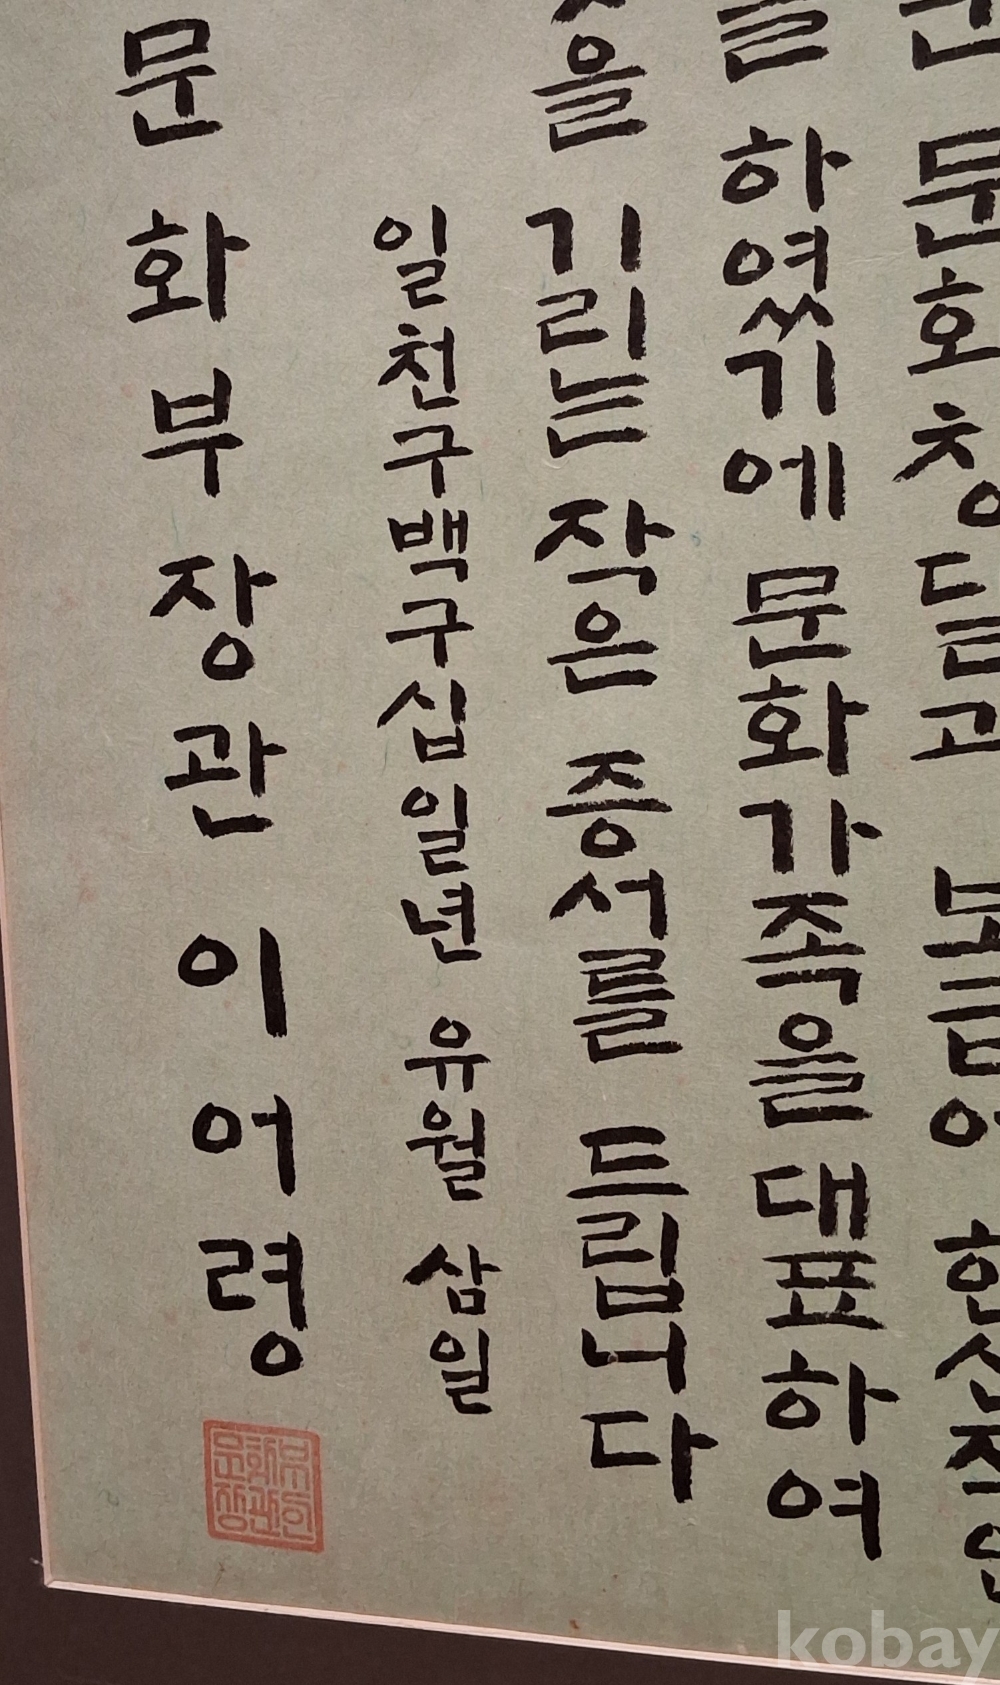 문화창달고
하였기에 문화가족을 대표하여
을 기리는 작은 증서를 드립니다
일천구백구십일년 유월 삼일
문화부장관 이어령
문화부장관인
kobay